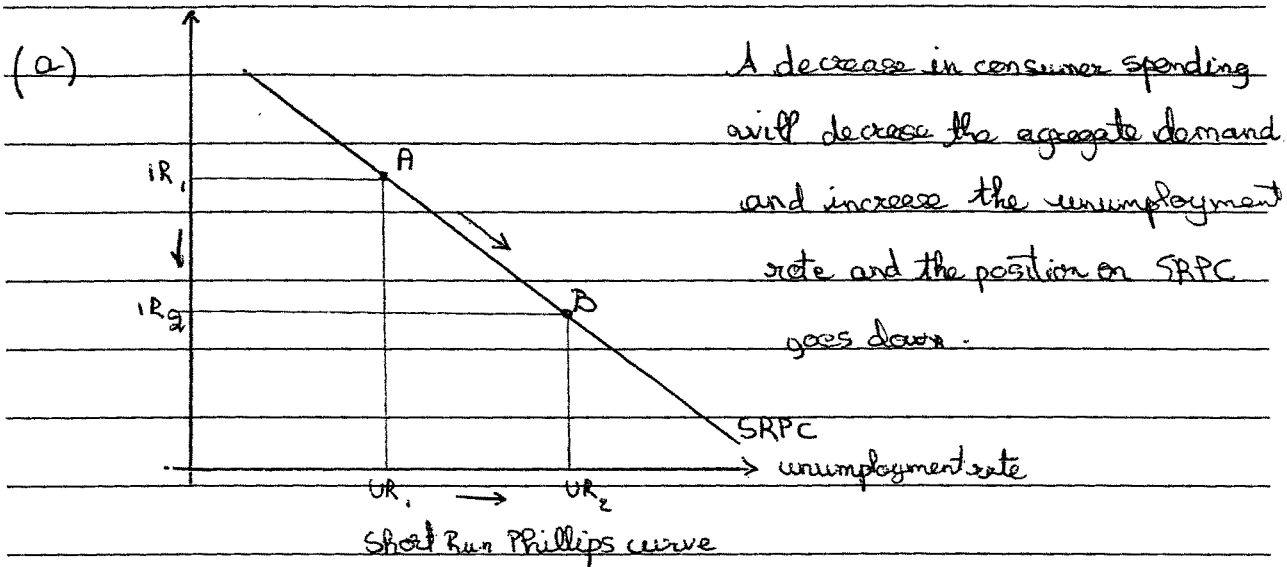 (a)
A decrease in consumer spending
will decrese the agregate demand
and increase the unumployment
rate and the position on SRPC
goes down.
A
iR₁
iR₂
B
SRPC
unumployment rate
UR₁ → UR₂
Short Run Phillips curve